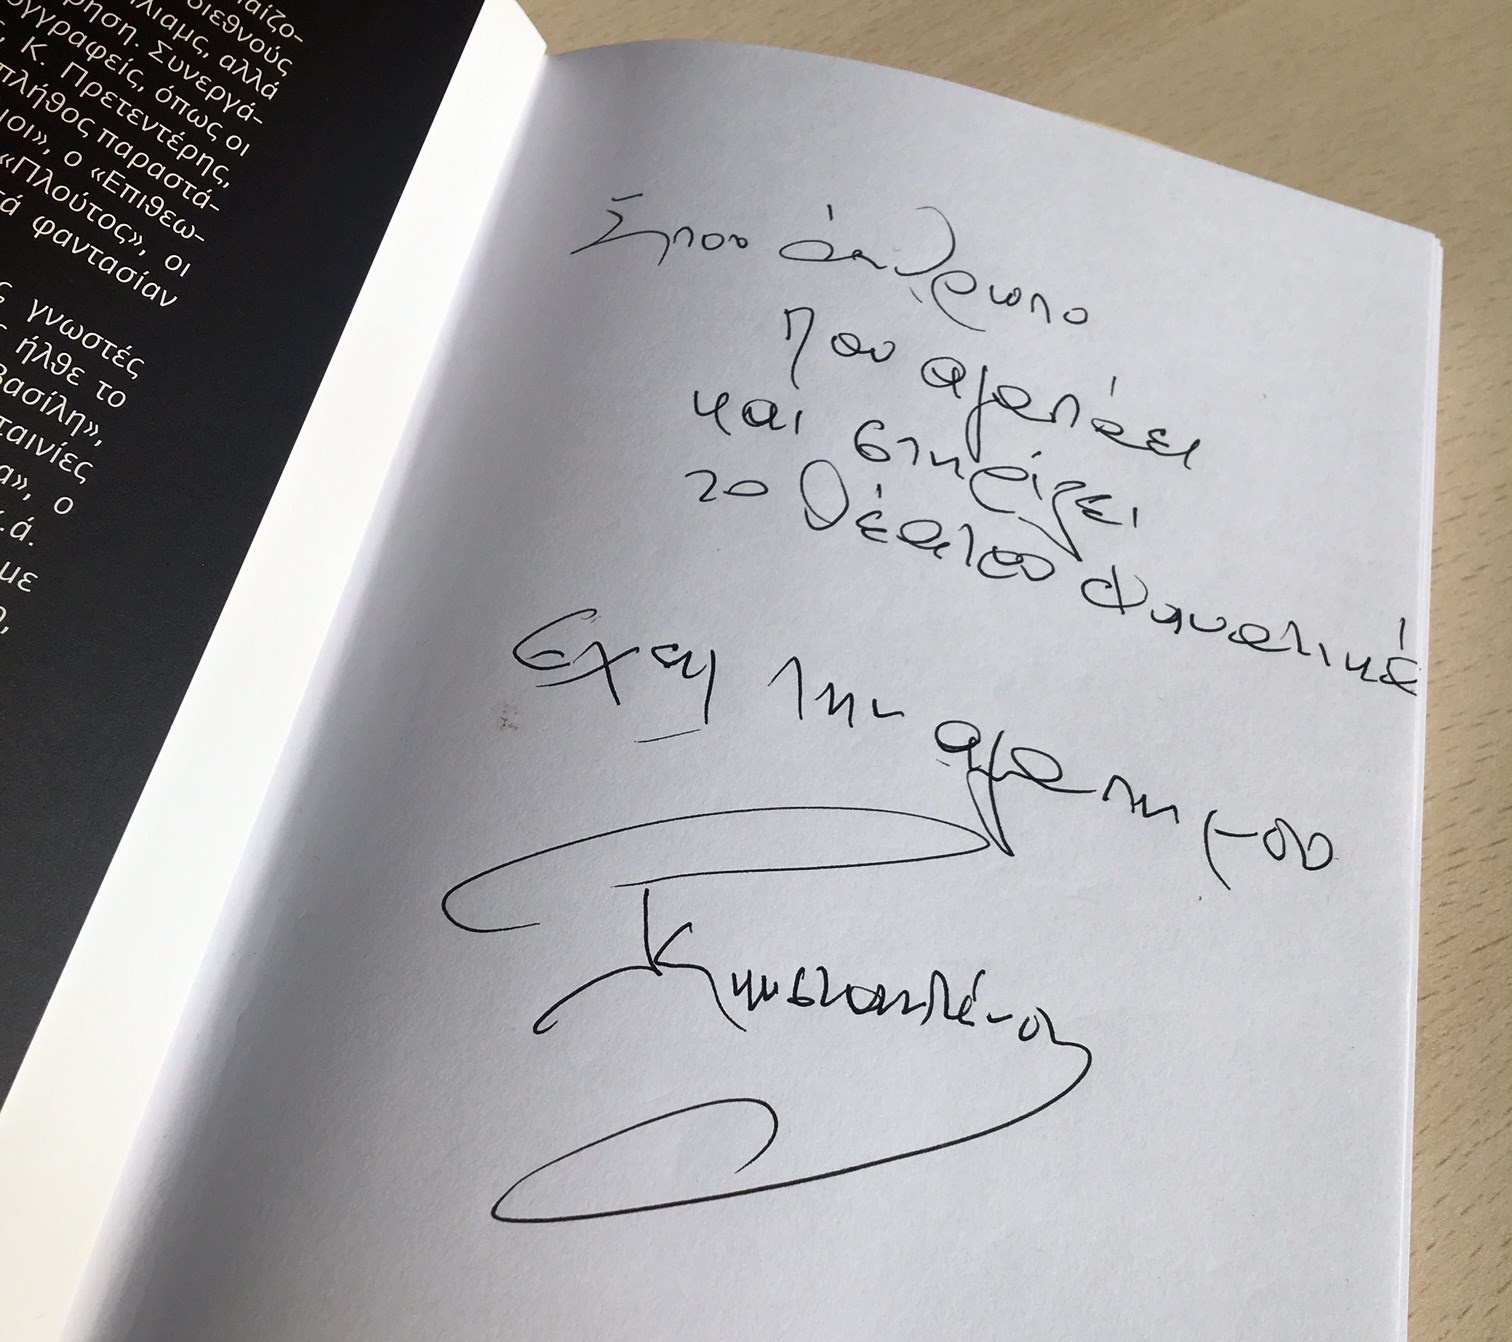 αίζο-
διεθνούς
λιαμς, αλλά
ρηση. Συνεργά-
γγραφείς, όπως οι
Κ. Πρετεντέρης,
πλήθος παραστά-
μοι», ο «Επιθεω-
«Πλούτος», οι
τά φαντασίαν
ς γνωστές
ήλθε το
Βασίλη»,
ταινίες
α», ο
κ.ά.
με
Στον άνθρωπο
που αγαπάει
και στηρίζει
το θέατρο φανατικά
Έχει την αγάπη μου